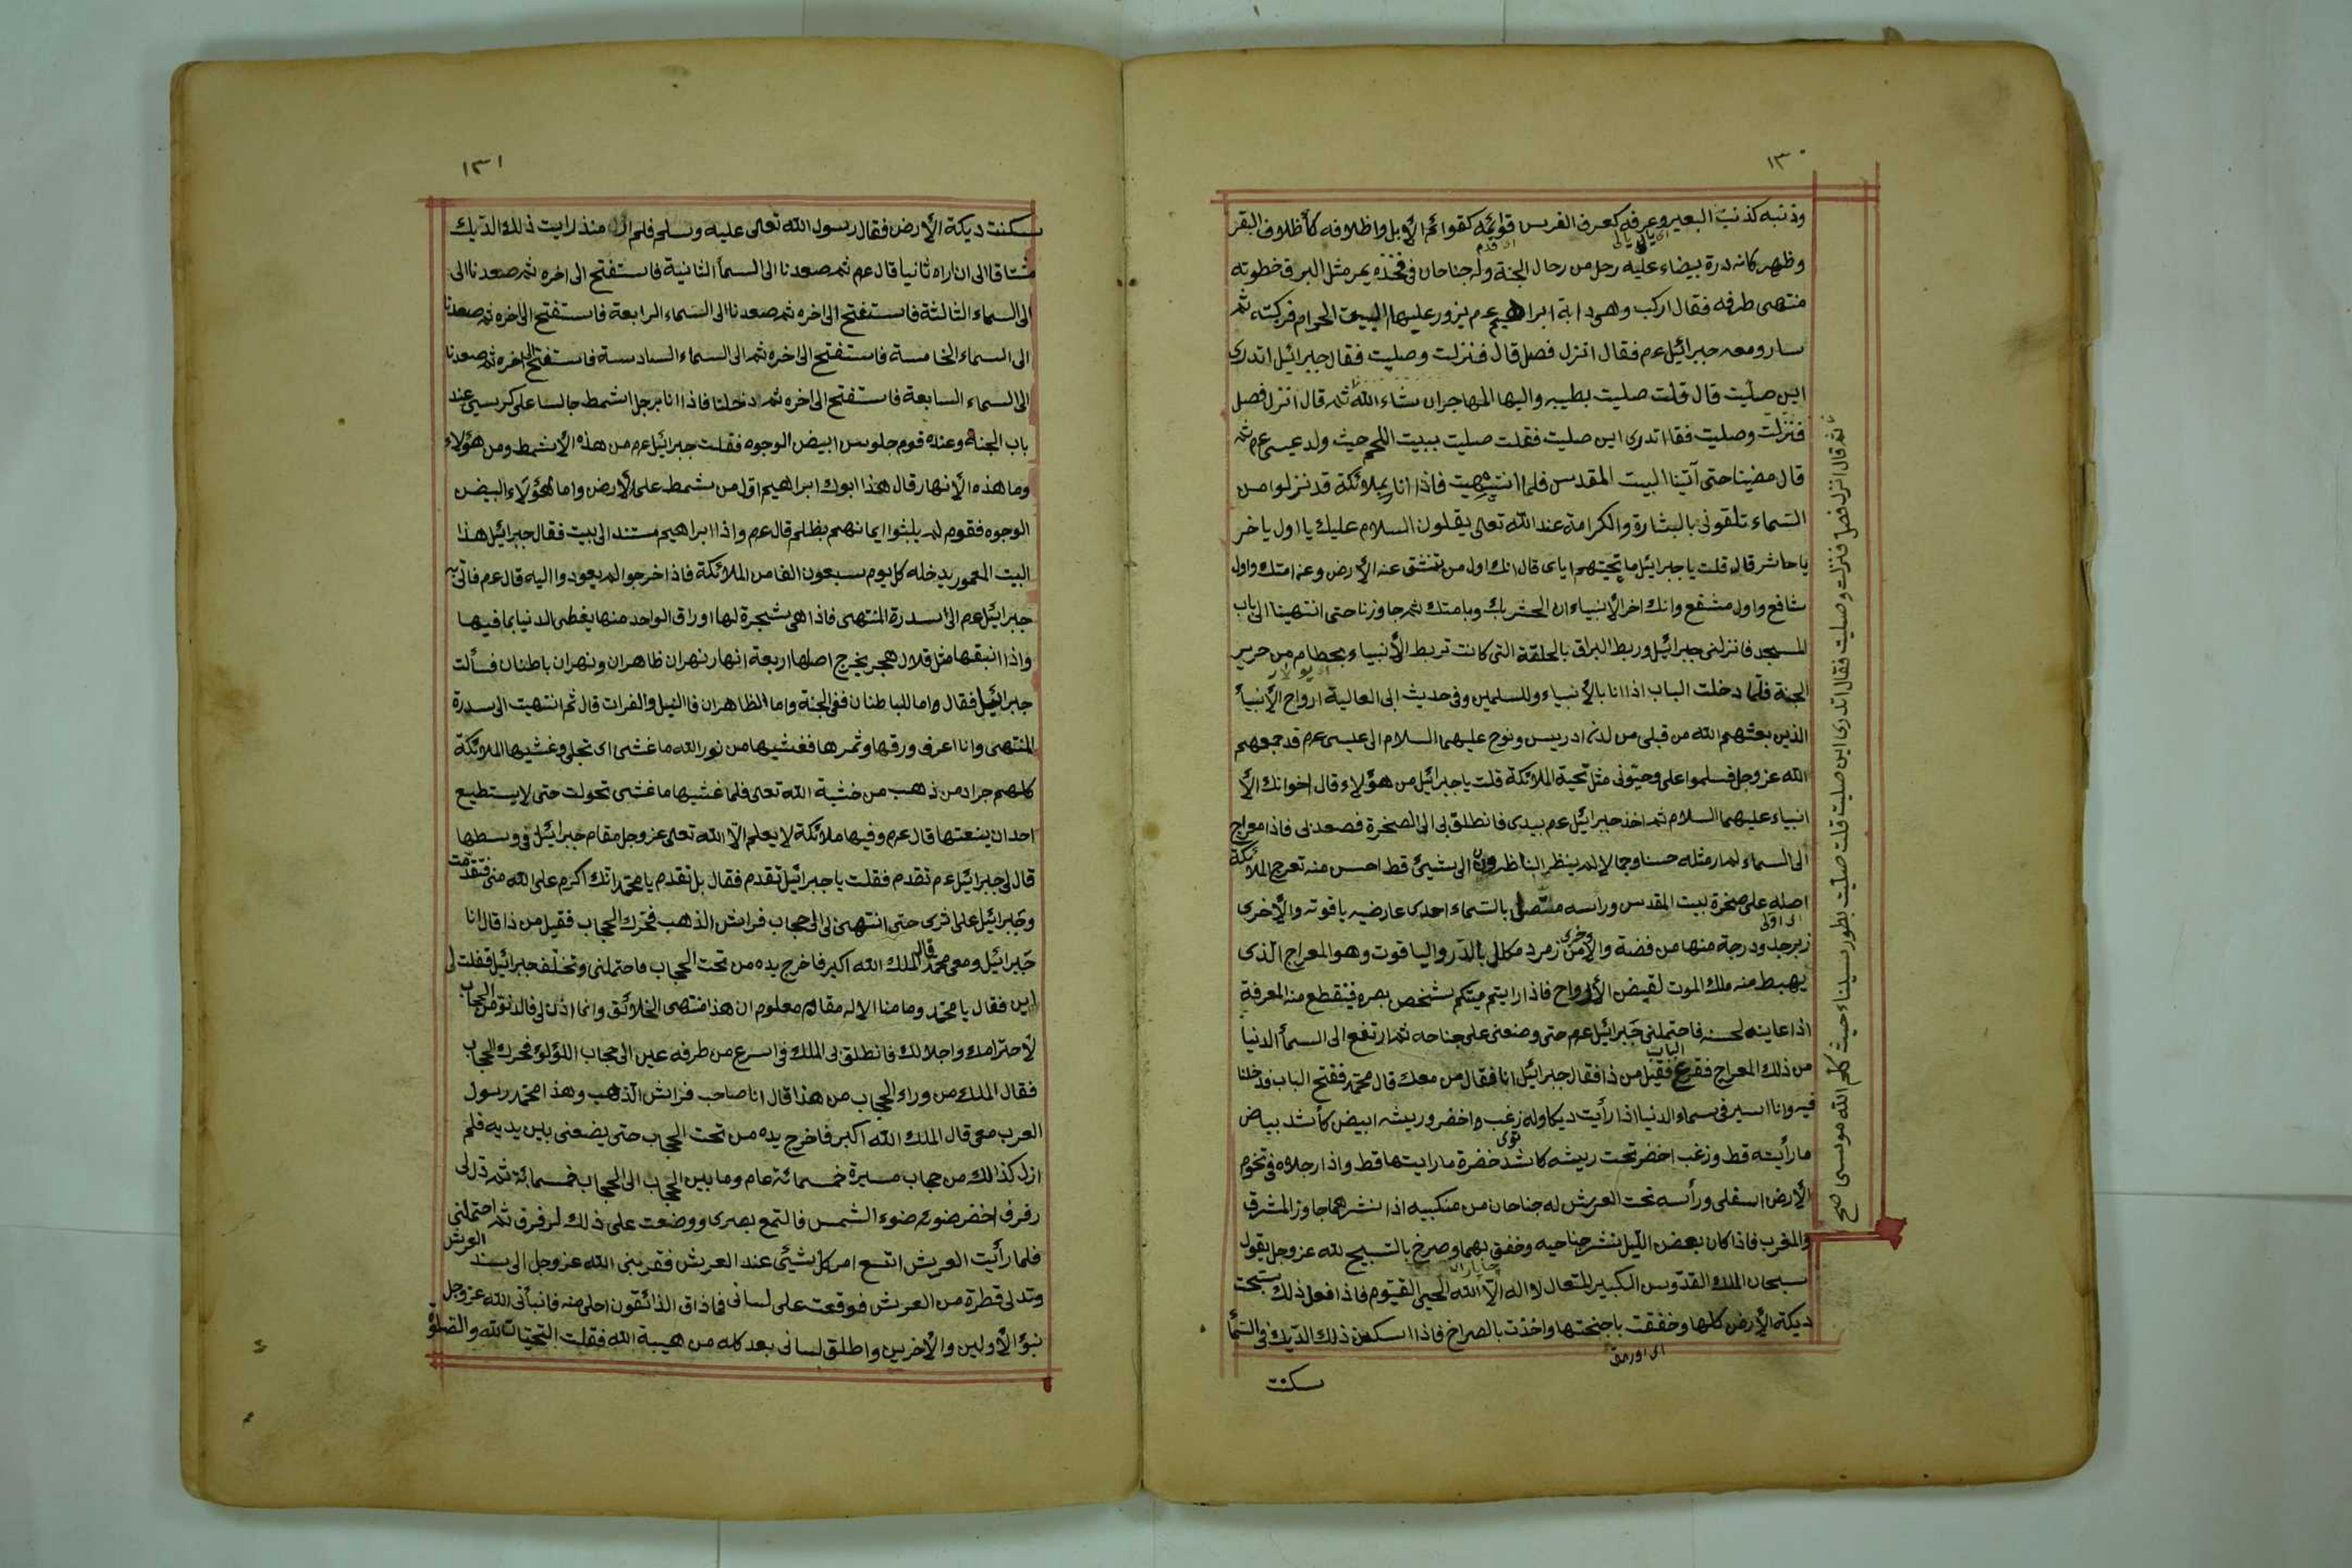 ١٣٠
وذنبه كذنب البعير وعرفه كعرف الفرس قوائمه كقوائم الأبل واظلافه كأظلاف البقر
وظهره كانه درة بيضاء عليه رحل من رحال الجنة وله جناحان في فخذه يمر مثل البرق خطوته
منتهى طرفه فقال اركب وهى دابة ابراهيم عم يزور عليها البيت الحرام فركبته ثم
سار ومعه جبرائيل عم فقال انزل فصل قال فنزلت وصليت فقال جبرائيل اتدرى
اين صليت قال قلت صليت بطيبه واليها المهاجر ان شاء الله ثم قال انزل فصل
فنزلت وصليت فقال اتدرى اين صليت فقلت صليت ببيت اللحم حيث ولد عيسى عم ثم
قال مضينا حتى آتينا البيت المقدس فلما انتهيت فاذا انا بملائكة قد نزلوا من
السماء تلقونى بالبشارة والكرامة عند الله تعالى يقلون السلام عليك يا اول يا خر
يا حاشر قال قلت يا جبرائيل ما تحيتهم اياى قال انك اول من تنشق عنه الأرض وعن امتك واول
شافع واول مشفع وانك اخر الأنبياء ان الحشر بك وبامتك ثم جاوزنا حتى انتهينا الى باب
المسجد فانزلنى جبرائيل وربط البراق بالحلقة التى كانت تربط الأنبياء بحطام من حرير
الجنة فلما دخلت الباب اذا انا بالأنبياء وللسلمين وفى حديث ابى العالية ارواح الأنبيأ
الذين بعثهم الله من قبلى من لدن ادريس ونوح عليهما السلام الى عيسى عم قد جمعهم
الله عز وجل فسلموا على وحيونى مثل تحية الملائكة قلت يا جبرائيل من هؤلاء قال اخوانك الأ
انبياء عليهما السلام ثم اخذ جبرائيل عم بيدى فانطلق بى الى الصخرة فصعد بى فاذا معراج
الى السماء لم ار مثله حسنا وجمالا لم ينظر الناظرون الى شيئ قط احسن منه تعرج الملائكة
اصله على صخرة بيت المقدس وراسه متصل بالسماء احدى عارضيه ياقوته والأخرى
زبرجد ودرجة منها من فضة والأخرى من زمرد مكلل بالدر والياقوت وهو المعراج الذى
يهبط منه ملك الموت لقبض الأرواح فاذا رايتم ميتكم شخص بصره فينقطع منه المعرفة
اذا عاينه لحسنه فاحتملنى جبرائيل عم حتى وضعنى على جناحه ثم ارتفع الى السمأ الدنيا
من ذلك المعراج فقرع الباب فقيل من ذا فقال جبرائيل انا فقال من معك قال محمد ففتح الباب فدخلنا
فيه وانا اسير فى سماء الدنيا اذا رأيت ديكا وله زغب واخضر وريشه ابيض كأشد بياض
ما رأيته قط وزغب اخضر تحت ريشه كاشد خضرة ما رايتها قط واذا رجلاه فى تخوم
الأرض اسفلى ورأسه تحت العرش له جناحان من منكبيه اذا نشرهما جاوز المشرق
والمغرب فاذا كان بعض الليل نشر جناحيه وخفق بهما وصرخ بالتسبيح لله عز وجل يقول
سبحان الملك القدوس الكبير المتعال لا اله الا الله الحي القيوم فاذا فعل ذلك سبحت
ديكة الأرض كلها وخفقت باجنحتها واخذت بالصراخ فاذا اسكن ذلك الديك فى السمأ
سكنت
ثم قال انزل فصل فنزلت وصليت فقال اتدرى اين صليت قلت صليت بطور سيناء حيث كلم الله موسى صح
١٣١
سكنت ديكة الأرض فقال رسول الله تعالى عليه وسلم فلم ازل منذ رايت ذلك الديك
مشتاقا الى ان اراه ثانيا قال عم ثم صعدنا الى السمأ الثانية فاستفتح الى اخره ثم صعدنا الى
الى السماء الثالثة فاستفتح الى اخره ثم صعدنا الى السماء الرابعة فاستفتح الى اخره ثم صعدنا
الى السماء الخامسة فاستفتح الى اخره ثم الى السماء السادسة فاستفتح الى اخره ثم صعدنا
الى السماء السابعة فاستفتح الى اخره ثم دخلنا فاذا انا برجل اشمط جالسا على كرسي عند
باب الجنة وعنده قوم جلوس ابيض الوجوه فقلت جبرائيل عم من هذه الأشمط ومن هؤلاء
وما هذه الأنهار قال هذا ابوك ابراهيم اول من شمط على الأرض واما هؤلاء البيض
الوجوه فقوم لم يلبثوا ايمانهم بظلم قال عم واذا ابراهيم مستند الى بيت فقال جبرائيل هذا
البيت المعمور يدخله كل يوم سبعون الفا من الملائكة فاذا خرجوا لم يعودوا اليه قال عم فاتى بى
جبرائيل عم الى سدرة المنتهى فاذا هى شيجرة لها اوراق الواحد منها يغطى الدنيا بما فيها
واذا انبقها مثل قلال هجر يخرج اصلها اربعة انهار نهران ظاهران ونهران باطنان فسألت
جبرائيل فقال واما للباطنان ففى الجنة واما الظاهران فالنيل والفرات قال ثم انتهيت الى سدرة
المنتهى وانا اعرف ورقها وثمرها فغشيها من نور الله ما غشى اى تجلى وغشيها الملائكة
كلهم جراد من ذهب من خشية الله تعالى فلما غشيها ما غشى تحولت حتى لا يستطيع
احد ان ينعتها قال عم وفيها ملائكة لا يعلم الا الله تعالى عز وجل مقام جبرائيل فى وسطها
قال لى جبرائيل عم تقدم فقلت يا جبرائيل تقدم فقال بل تقدم يا محمد انك اكرم على الله منى فتقدمت
وجبرائيل على اثرى حتى انتهى بى الى حجاب فراش الذهب فحرك الحجاب فقيل من ذا قال انا
جبرائيل ومعى محمد قال الملك الله اكبر فاخرج يده من تحت الحجاب فاحتملنى وتخلف جبرائيل فقلت لى
اين فقال يا محمد وما منا الا له مقام معلوم ان هذا منتهى الخلائق وانما اذن لى فالدنو من الحجاب
لأحترامك واجلالك فانطلق بى الملك فى اسرع من طرفه عين الى حجاب اللؤلؤ فحرك الحجاب
فقال الملك من وراء الحجاب من هذا قال انا صاحب فراش الذهب وهذا محمد رسول
العرب معى قال الملك الله اكبر فاخرج يده من تحت الحجاب حتى يضعنى بين يديه فلم
ازل كذالك من حجاب مسيرة خمسمائة عام وما بين الحجاب الى الحجاب خمسمائة ثم تدلى
رفرف اخضر ضوئه ضوء الشمس فالتمع بصرى ووضعت على ذلك لرفرق ثم احتملنى
فلما رأيت العرش اتسع امر كل شيئى عند العرش فقربنى الله عز وجل الى سند العرش
وتدلى قطرة من العرش فوقعت على لسانى فاذاق الذائقون احلى منه فانبأنى الله عز وجل
نبؤ الأولين والأخرين واطلق لسانى بعد كله من هيبة الله فقلت التحيات لله والصلوة